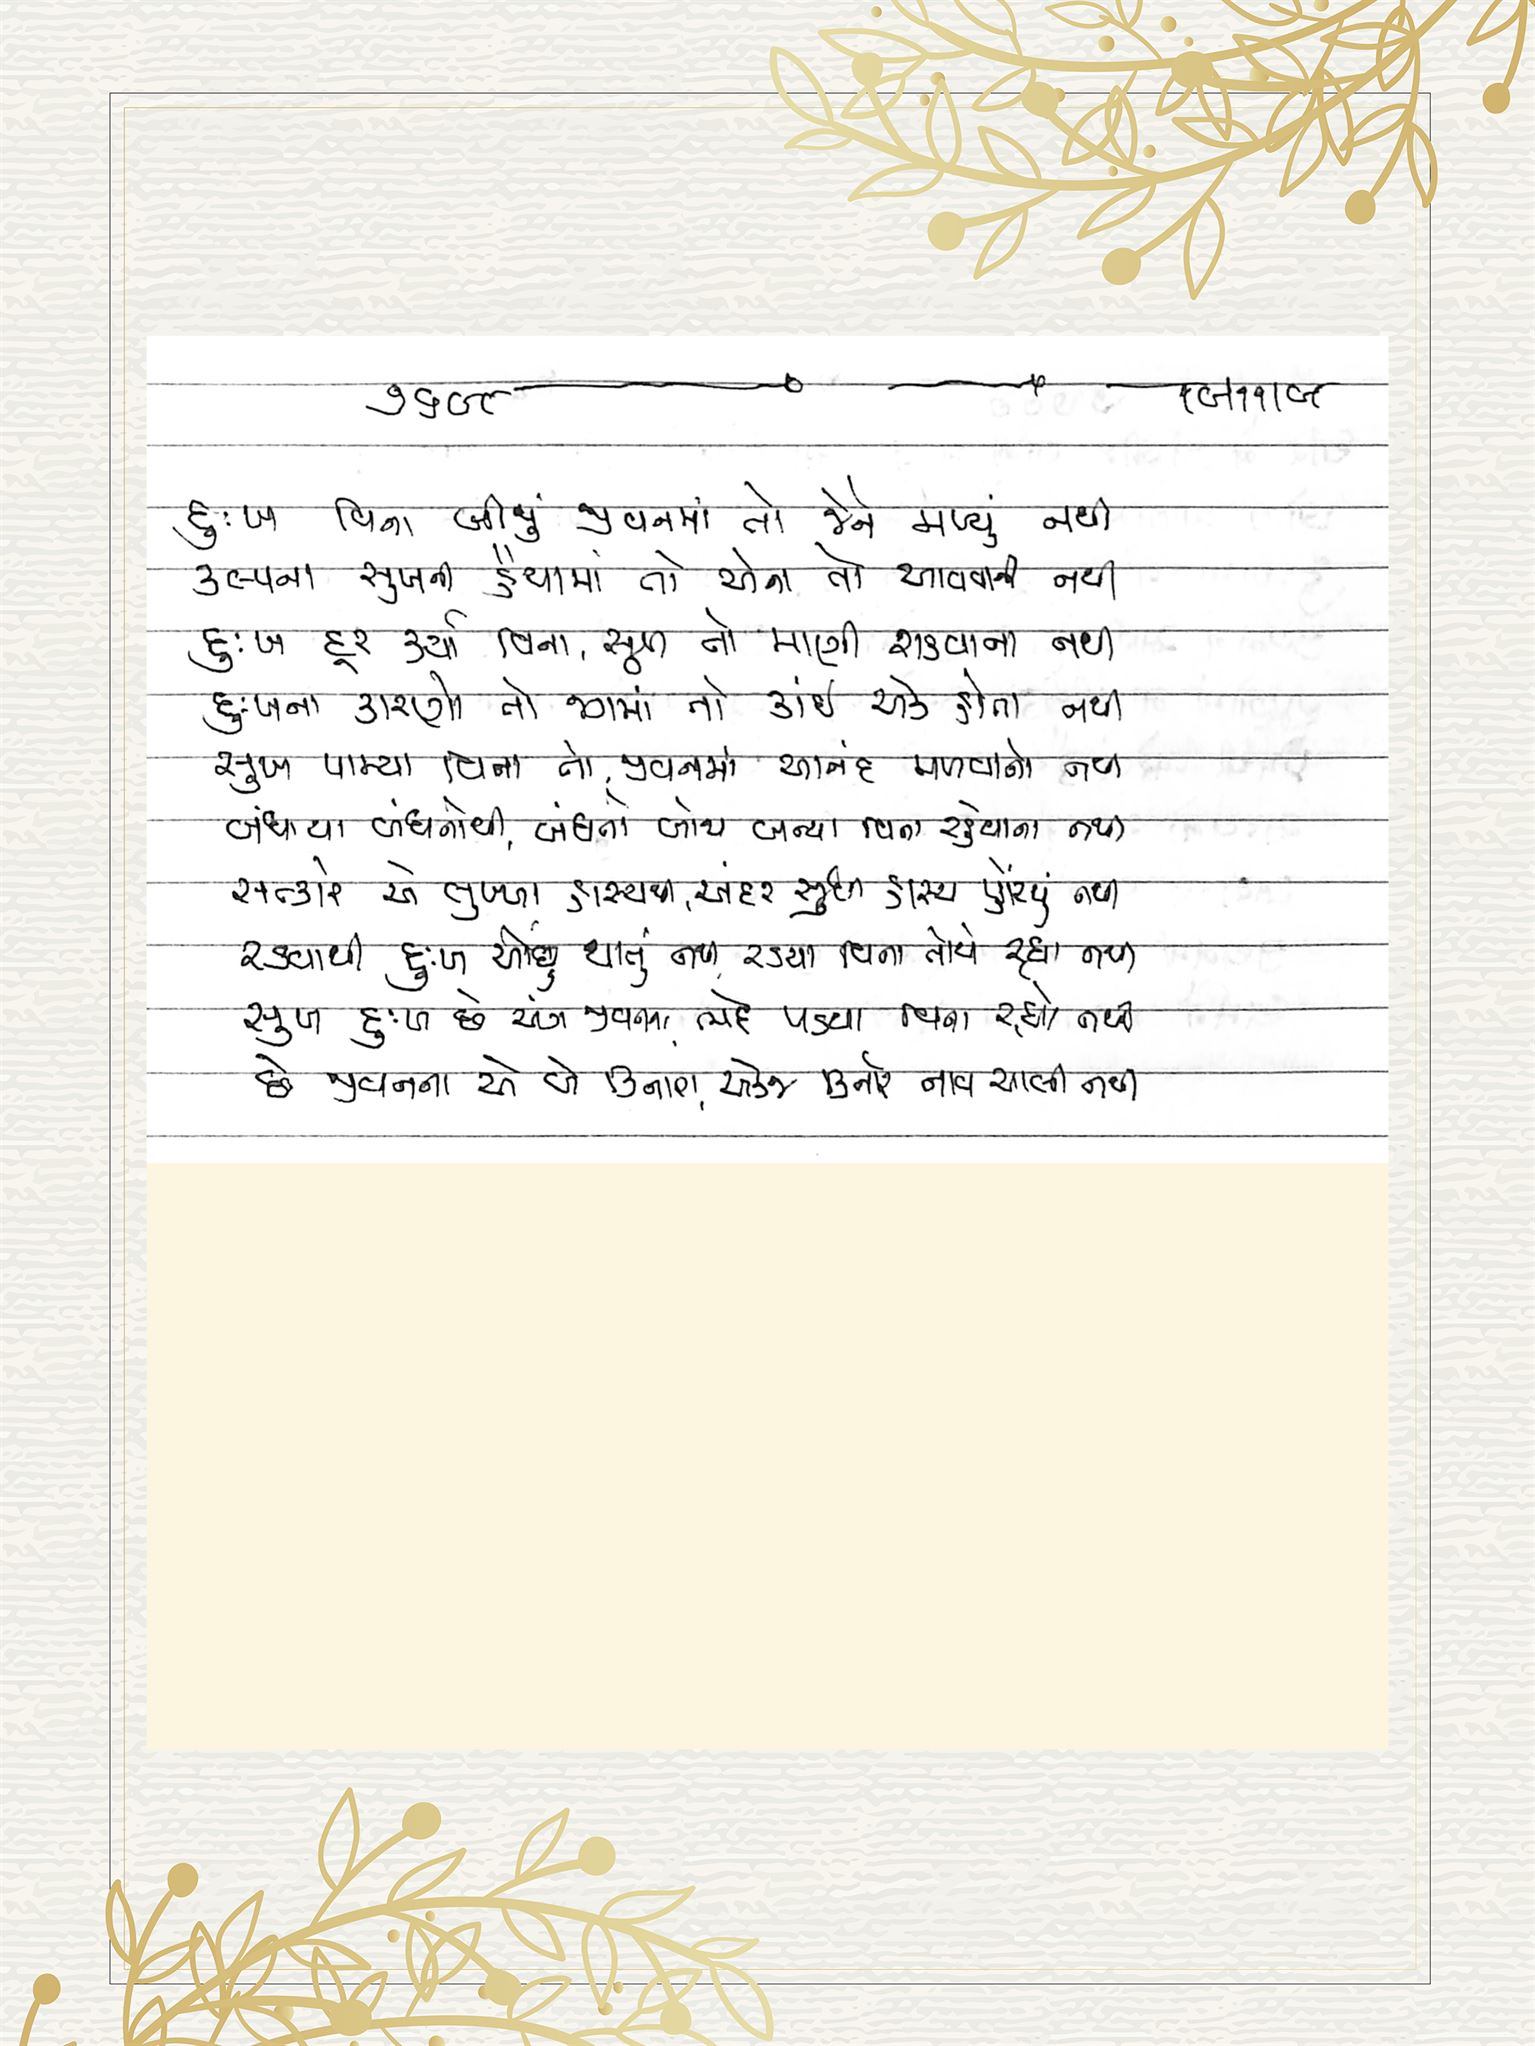 દુઃખ વિના બીજું જીવનમાં તો જેને મળ્યું નથી
કલ્પના સુખની હૈયામાં તો એના તો આવવાની નથી
દુઃખ દૂર કર્યા વિના, સુખ તો માણી શકવાના નથી
દુઃખના કારણો તો જગમાં તો કાંઈ એક હોતા નથી
સુખ પામ્યા વિના તો, જીવનમાં આનંદ મળવાનો નથી
બંધાયા બંધનોથી, બંધનો બોજ બન્યા વિના રહેવાના નથી
સત્કારે એ લુખ્ખા હાસ્યથી, અંદર સુધી હાસ્ય પહોંચ્યું નથી
રડવાથી દુઃખ ઓછું થાતું નથી, રડયા વિના તોયે રહ્યા નથી
સુખ દુઃખ છે અંગ જીવનના, ભેદ પડયા વિના રહ્યો નથી
છે જીવનના એ બે કિનારા, એકજ કિનારે નાવ ચાલી નથી